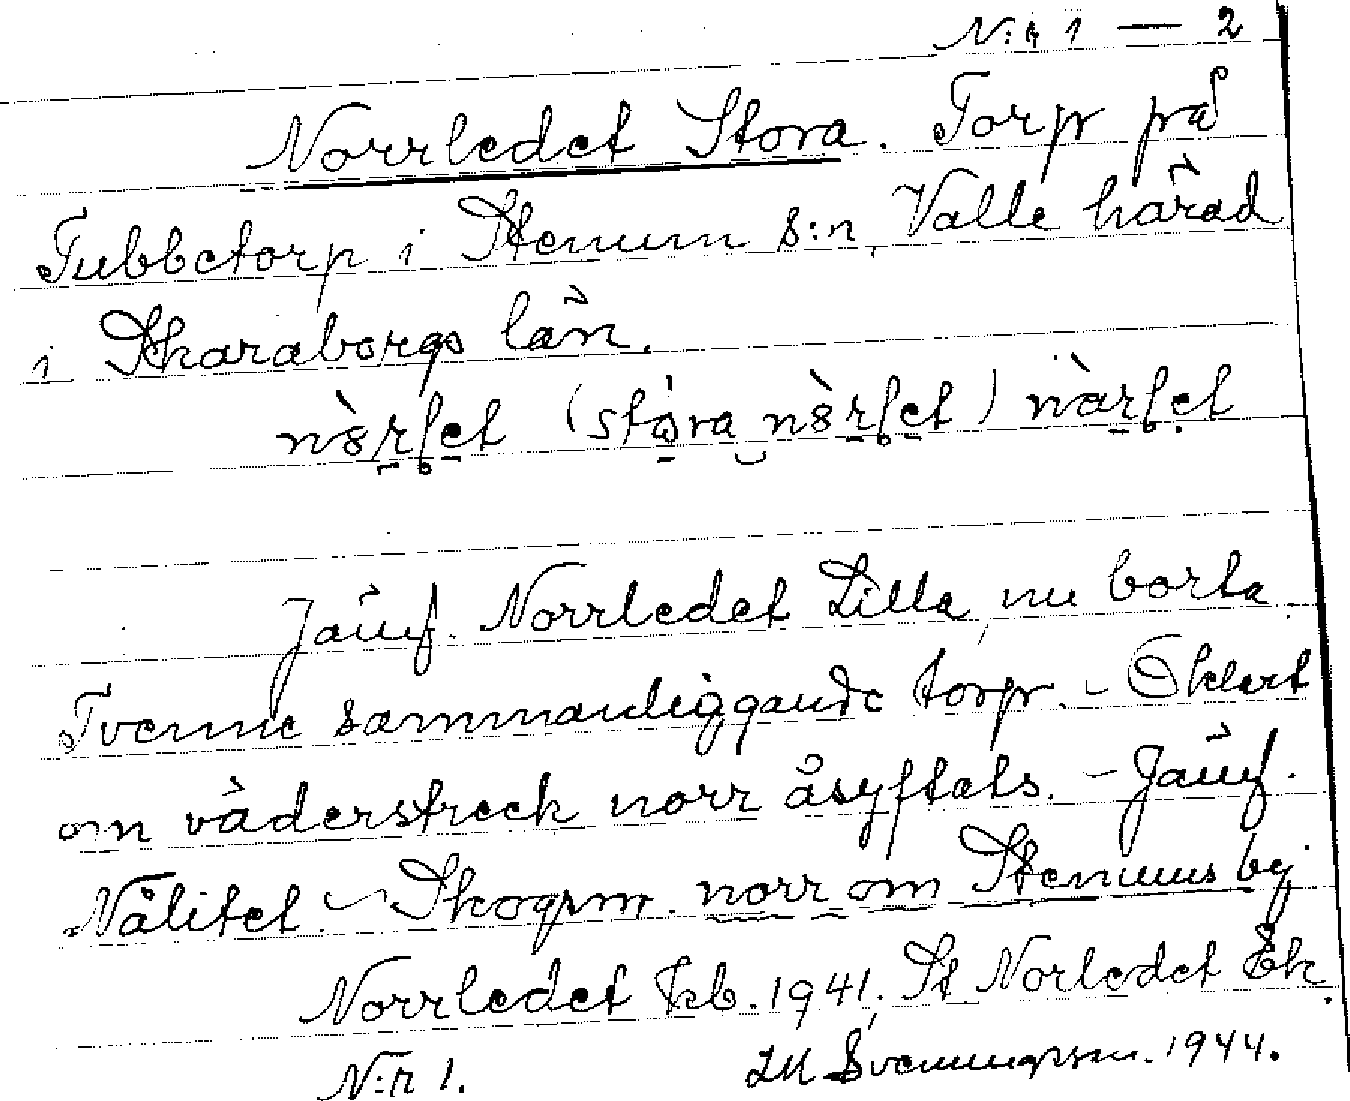 N:r 1 — 2
Norrledet Stora. Torp på
Tubbetorp i Stenum s:n, Valle härad
i Skaraborgs län.
(stora
Jämf. Norrledet Lilla, nu borta
Tvenne sammanliggande torp. - Oklart
om väderstreck norr åsyftats. - Jämf.
Nålitet - Skogsm. norr om Stenums by
Norrledet Jkb. 1941. St Norledet Ek.
N:r 1. Svenungsson. 1944.